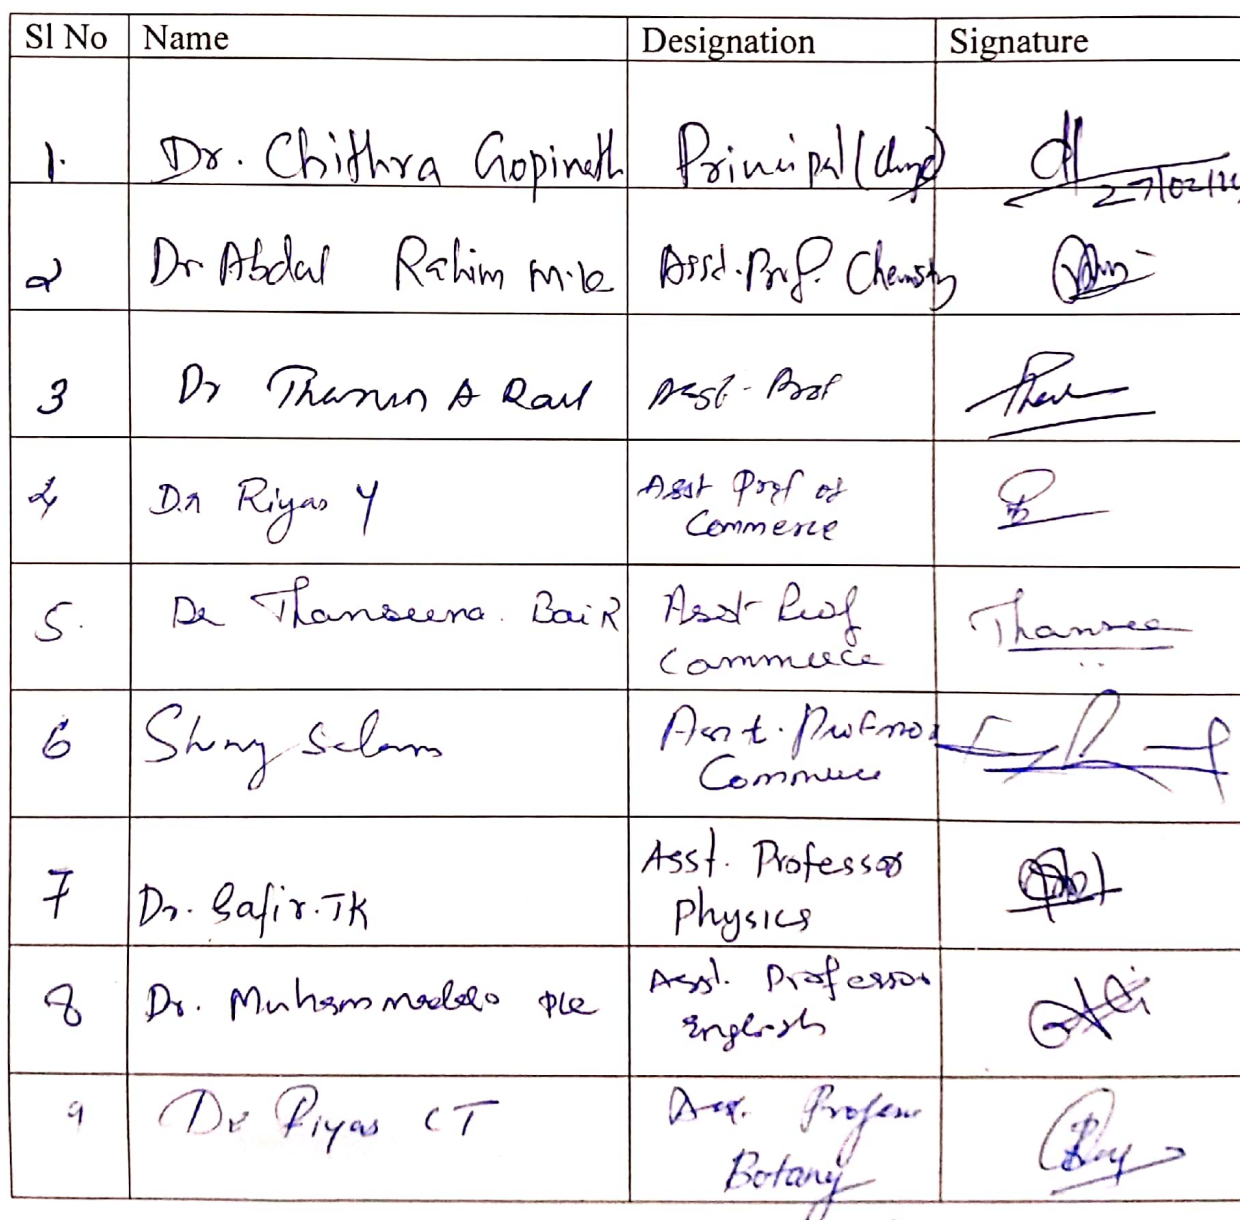 Sl No Name Designation Signature
1. Dr. Chithra Gopinath Principal (Charge)
27/02/
2 Dr Abdal Rahim M.K Asst. Prof. Chemistry
3 Dr A Rauf Asst - Prof
4 Dr Riyas Y Asst Prof of
Commerce
5. Dr Thanseena. Bai R Asst Prof
Commerce
6 Selam Asst. Professor
Commerce
7 Dr. Safir. TK Asst. Professor
Physics
8 Dr. Asst. Professor
English
9 Dr Riyas CT Professor
Botany